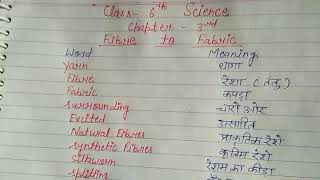 Class- 6th Science
Chapter- 3rd
Fibre to Fabric
Word Meaning
Yarn धागा
Fibre रेशा (तंतु)
Fabric कपड़ा
Surrounding चारों ओर
Excited उत्साहित
Natural Fibres प्राकृतिक रेशे
Synthetic Fibres कृत्रिम रेशे
Silkworm रेशम का कीड़ा
Splitting